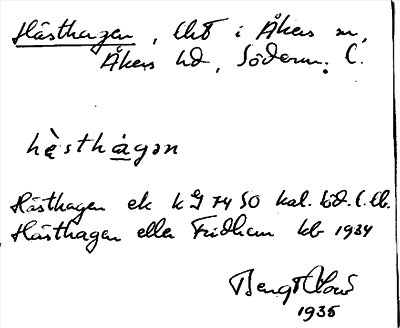 Hästhagen, lht i Åkers sn,
Åkers hd, Söderm. l.
hè̀sthàgən
Hästhagen ek kg 7450 kal.
Hästhagen eller Fridhem kb 1934
Bengt
1935